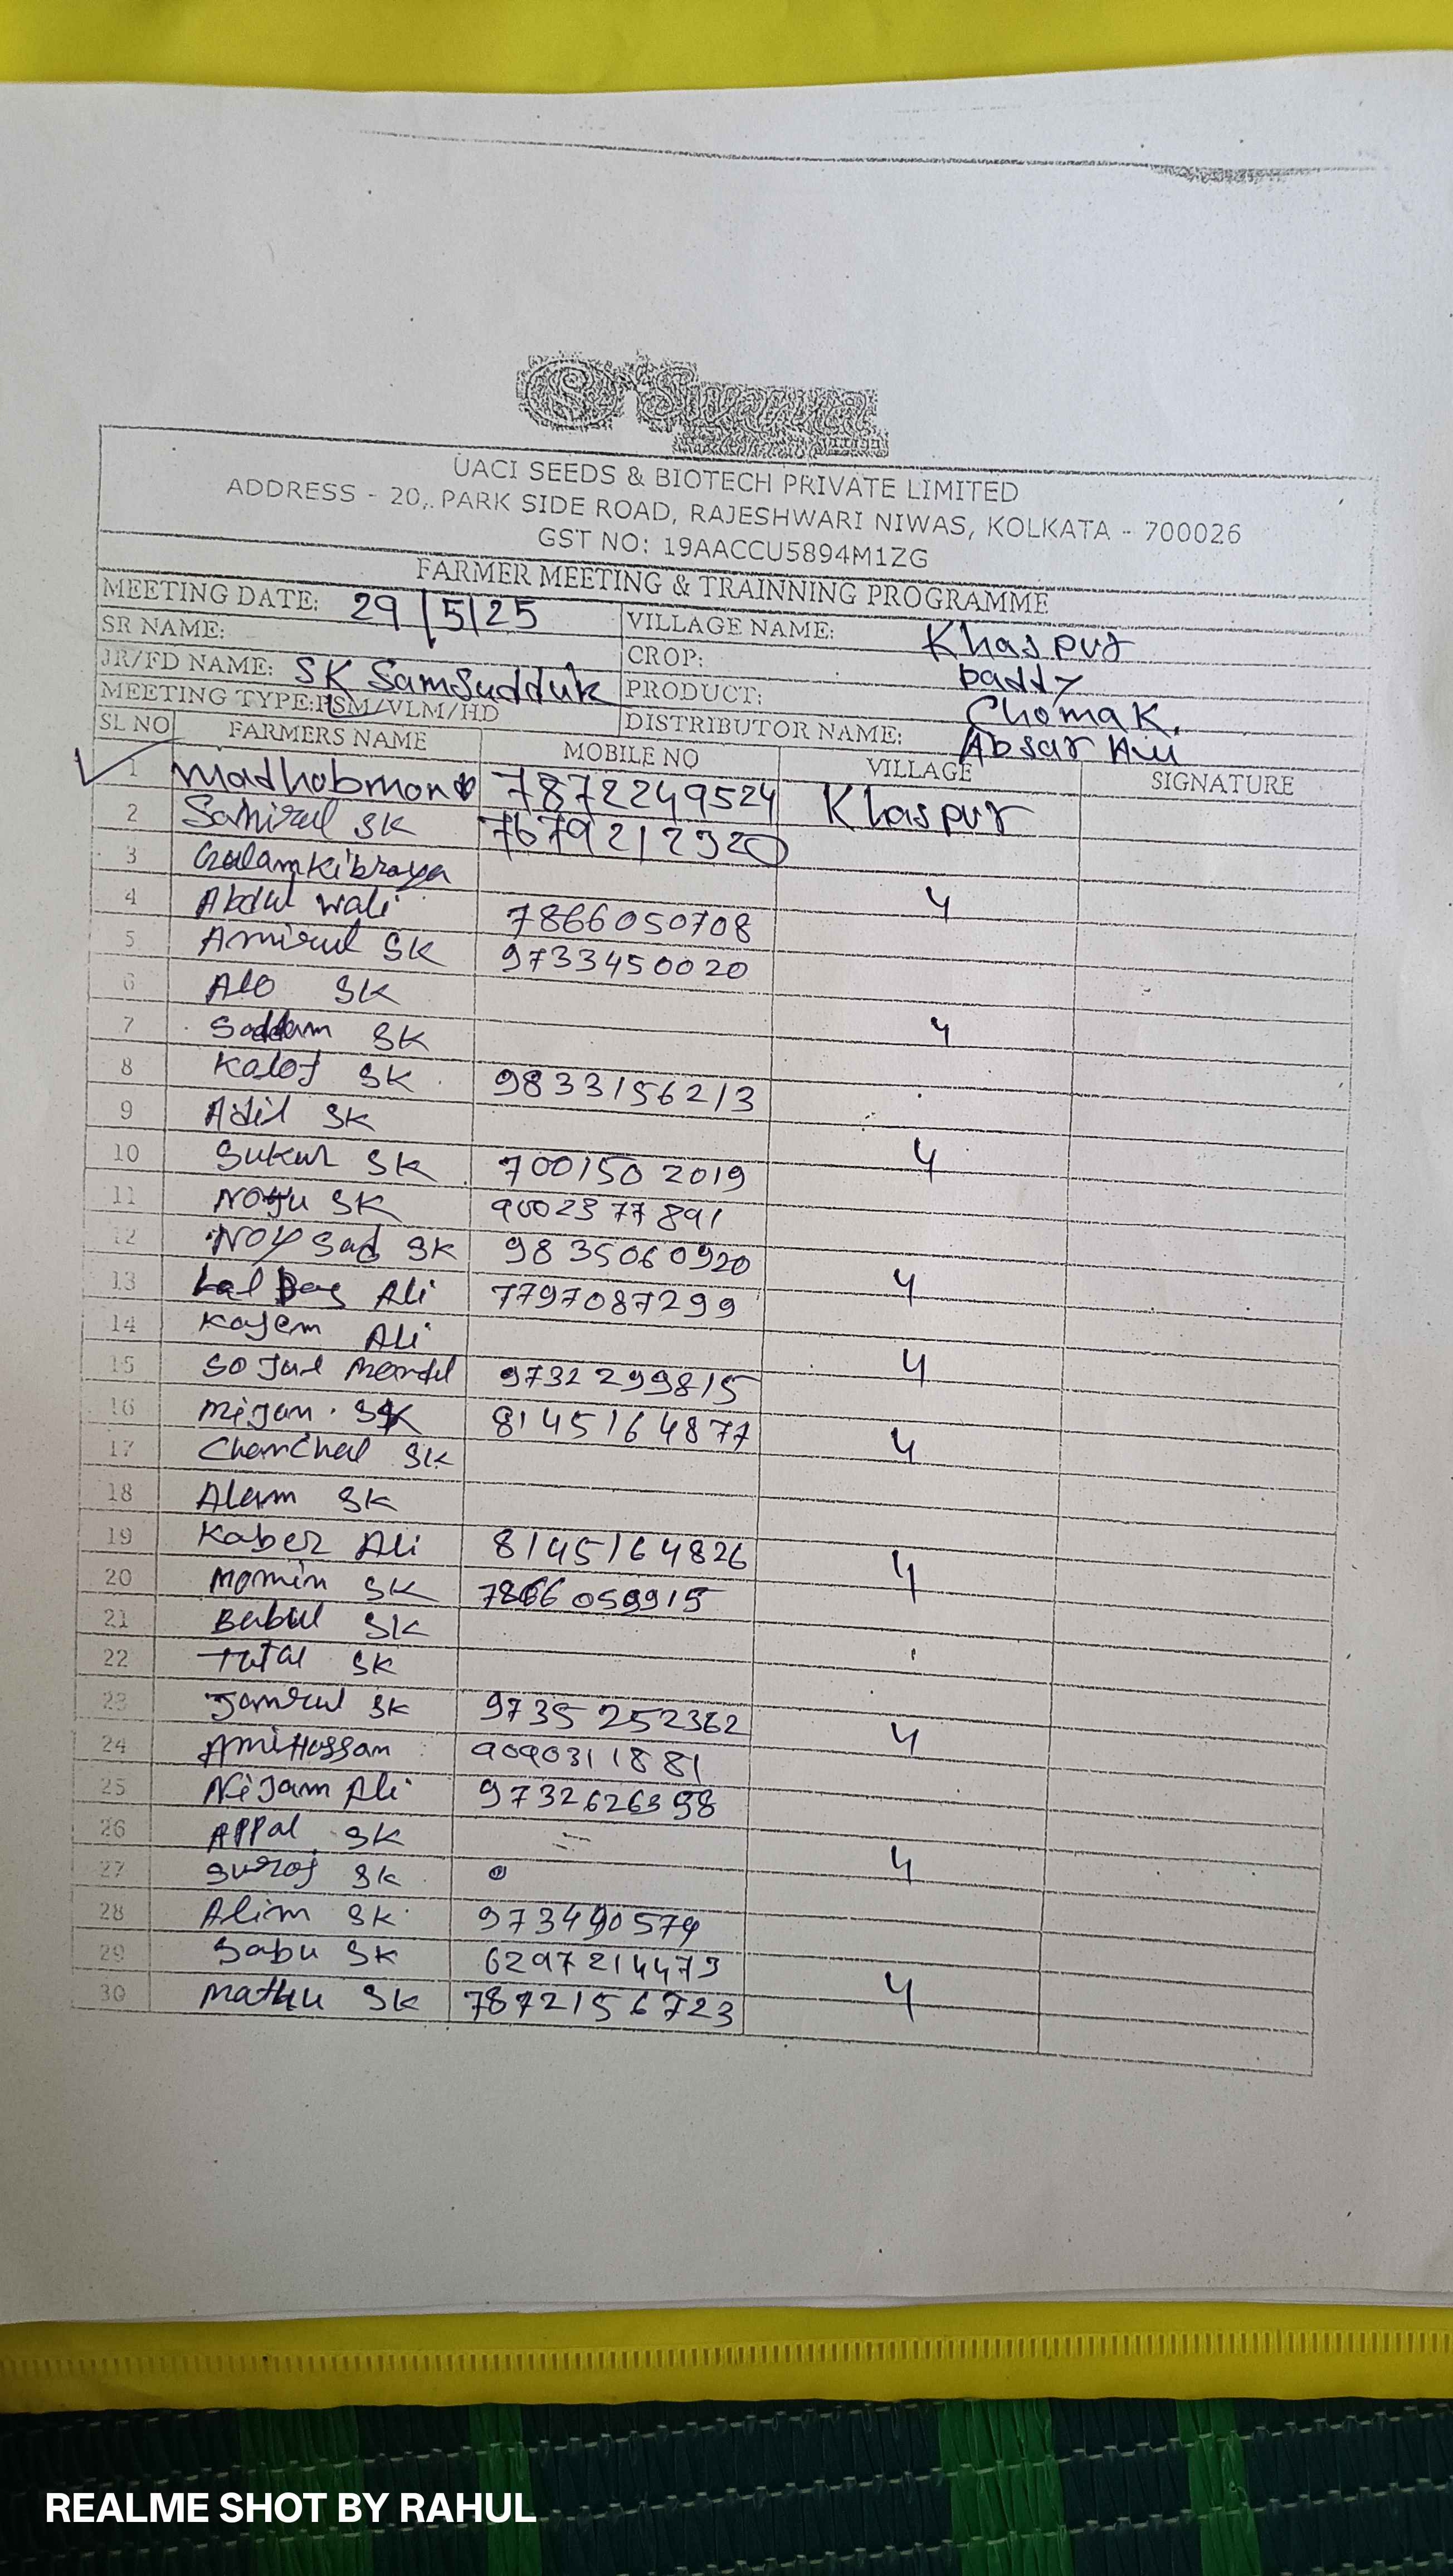 UACI SEEDS & BIOTECH PRIVATE LIMITED
ADDRESS - 20, PARK SIDE ROAD, RAJESHWARI NIWAS, KOLKATA - 700026
GST NO: 19AACCU5894M1ZG
FARMER MEETING & TRAINNING PROGRAMME
MEETING DATE: 29/5/25 VILLAGE NAME: Khaspur
SR NAME: CROP: paddy
JR/FD NAME: SK Samsudduk PRODUCT: Chomak,
MEETING TYPE:PSM/VLM/HD DISTRIBUTOR NAME: Absar Ali
SL NO FARMERS NAME MOBILE NO VILLAGE SIGNATURE
1 7872249524 Khaspur
2 Samirul SK 7679212920
3 Golam Kibraya 4
4 Abdul wali 7866050708
5 Amirul SK 9733450020
6 Alo SK
7 Saddam SK 4
8 Kalof SK 9833156213
9 Adil SK
10 Sukur SK 7001502019 4
11 SK 9002377891
12 Noysad SK 9835060920
13 Ali 7797087299 4
14 Kasem Ali
15 Sojul Mondal 9732299815 4
16 Mijan SK 8145164877
17 Chanchal SK 4
18 Alam SK
19 Kaber Ali 8145164826
20 Momin SK 7866059915 4
21 Babul SK
22 Tutal SK
23 Jamrul SK 9735252362
24 Ami Hossan 9090311881 4
25 Nijam Ali 9732626398
26 Appal SK
27 Suroj SK 4
28 Alim SK 973490574
29 Sabu SK 6297214473
30 Mathu SK 7872156723 4
REALME SHOT BY RAHUL